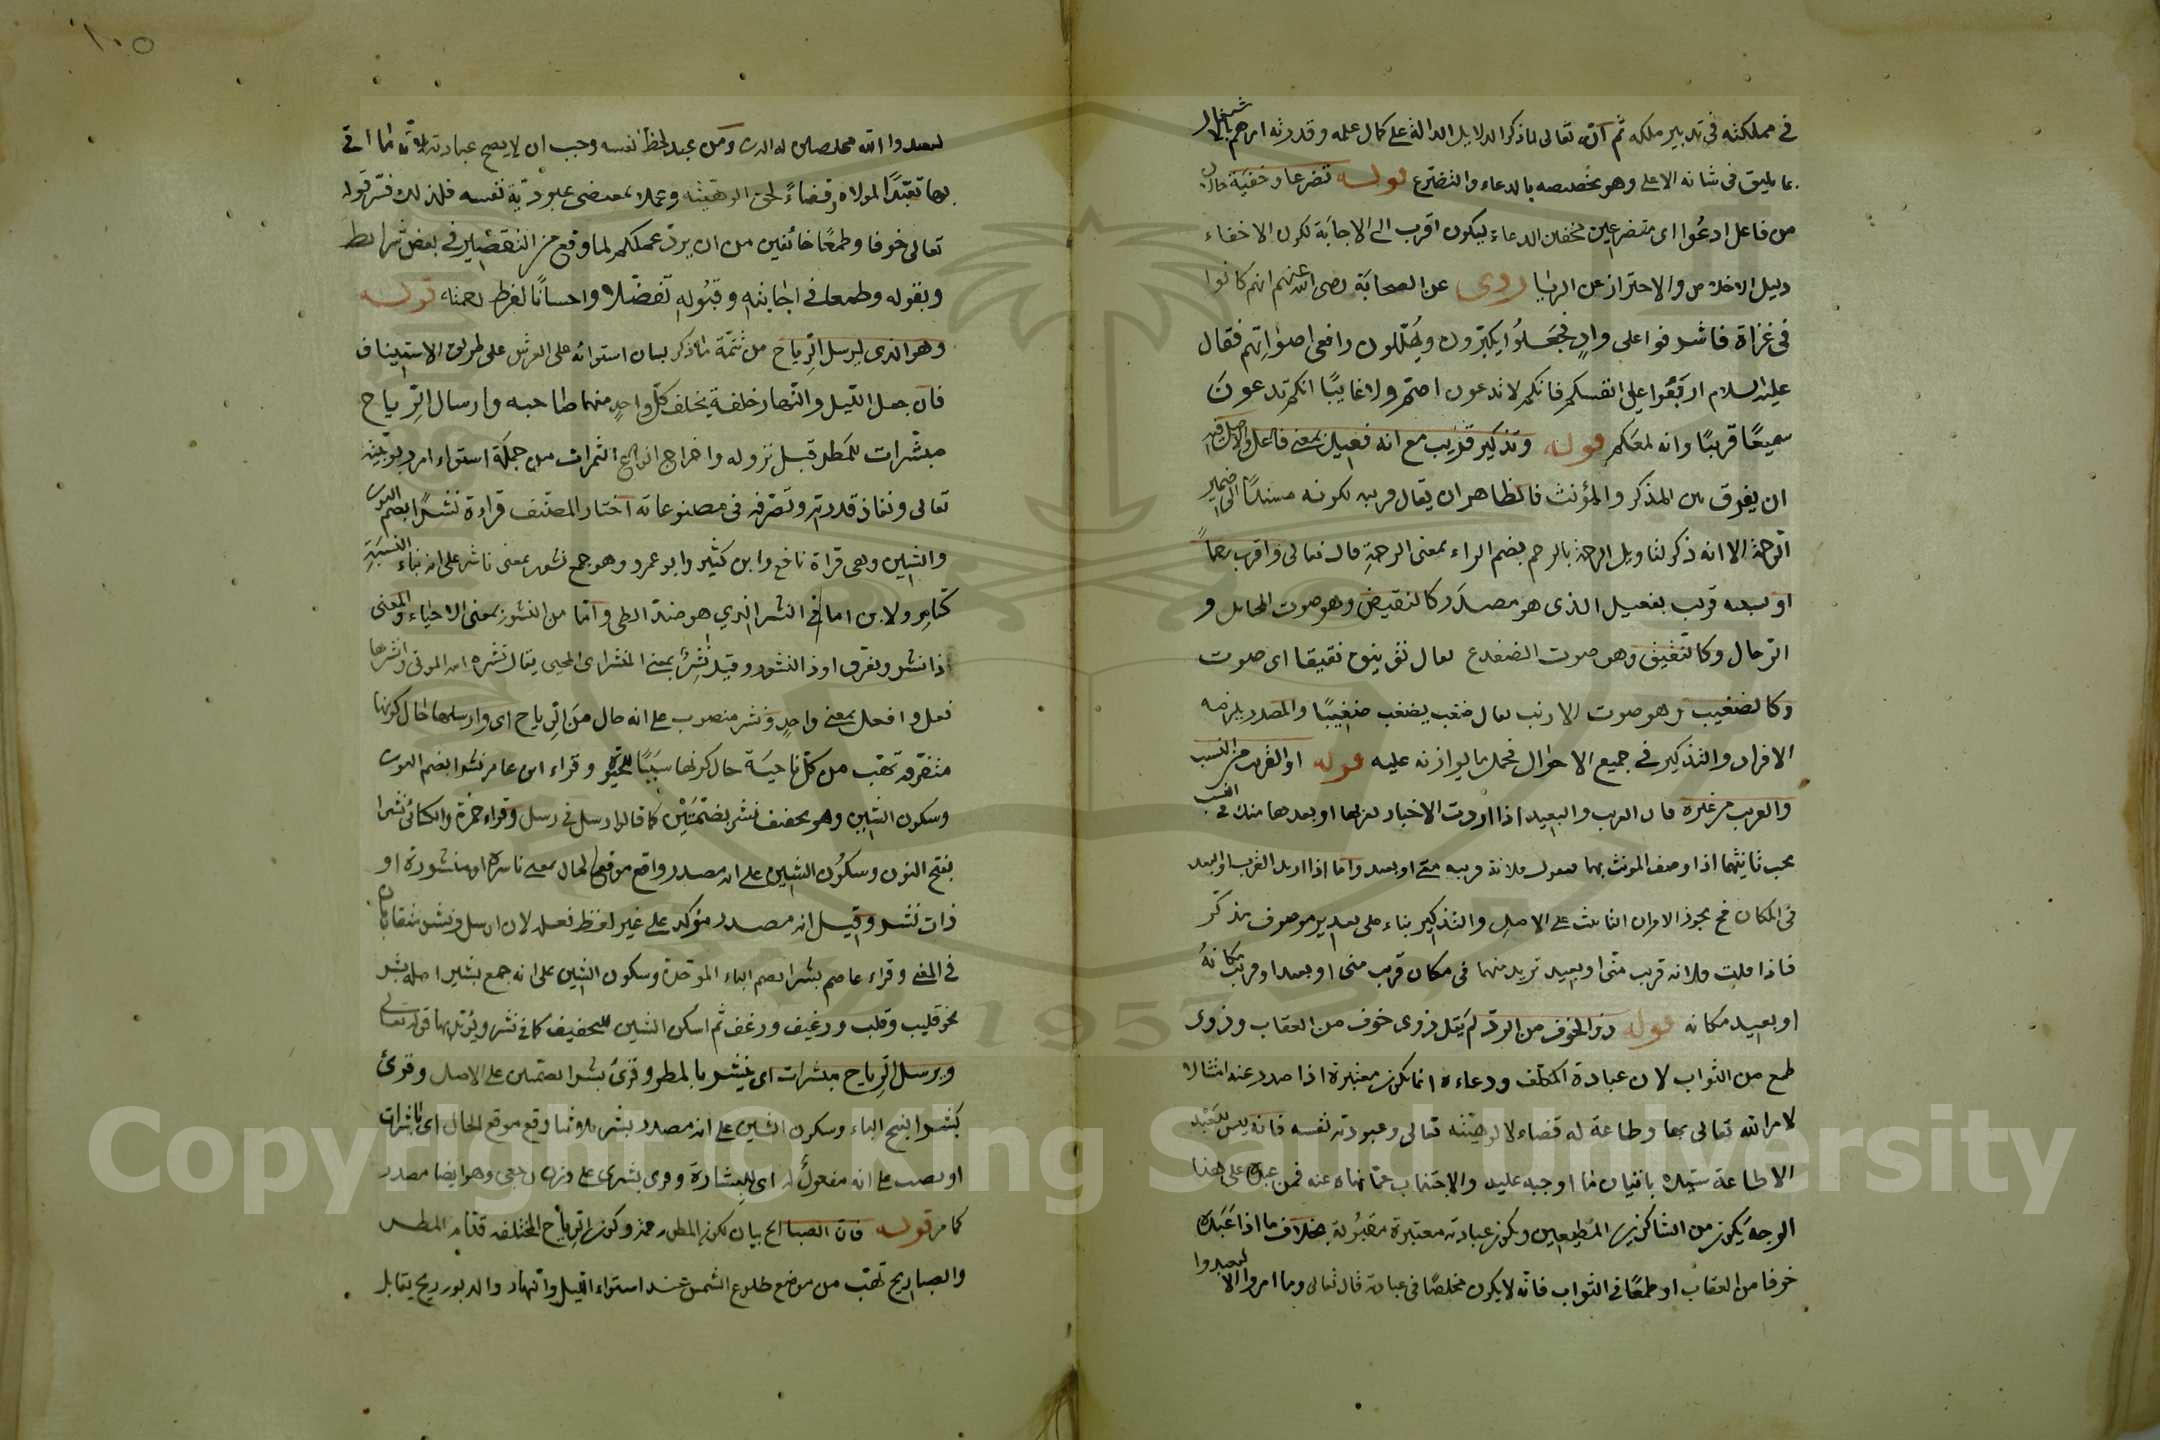 في مملكته في تدبير ملكه ثم انه تعالى لما ذكر الدلايل الدالة على كمال علمه وقدرته امرهم بالاشتغال
بما يليق في شانه الاعلى وهو تخصيصه بالدعاء والتضرع قوله تضرعا وخفية حال
من فاعل ادعوا اى متضرعين مخفين الدعاء ليكون اقرب الى الاجابة لكون الاخفاء
دليل الاخلاص والاحتراز عن الريا روى عن الصحابة رضى الله عنهم انهم كانوا
في غزاة فاشرفوا على واد فجعلوا يكبرون ويهللون رافعى اصواتهم فقال
عليه السلام اربعوا على انفسكم فانكم لا تدعون اصم ولا غايبا انكم تدعون
سميعا قريبا وانه لمعكم قوله وتذكير قريب مع انه فعيل بمعنى فاعل والاصل فيه
ان يفرق بين المذكر والمؤنث فالظاهر ان يقال قريبة لكونه مسندا الى ضمير
الرحمة الا انه ذكر لتاويل الرحمة بالرحم بضم الراء بمعنى الرحمة قال تعالى واقرب رحما
او لشبهه قريب بفعيل الذى هو مصدر كالنقيض وهو صوت المحامل و
الرحال وكالنقيق وهو صوت الضفدع يقال نق ينق نقيقا اى صوت
وكالضغيب وهو صوت الارنب يقال ضغب يضغب ضغيبا والمصدر يلزمه
الافراد والتذكير في جميع الاحوال فحمل ما يوازنه عليه قوله او الفرق من النسب
والقريب من غيره فان القريب والبعيد اذا اردت الاخبار بقربها او بعدها منك في النسب
يجب تانيثهما اذا وصف المونث بهما تقول فلانة قريبة منى او بعيدة واما اذا اريد القرب او البعد
في المكان فح يجوز الامران التانيث على الاصل والتذكير بناء على تقدير موصوف مذكر
فاذا قلت فلانة قريب منى او بعيد تريد منهما في مكان قريب منى او بعيد او قريب مكانه
او بعيد مكانه قوله ذوى الخوف من الرد لم يقل ذوى خوف من العقاب وذوى
طمع من الثواب لان عبادة المكلف ودعاءه انما يكون معتبرة اذا صدر عنه امتثالا
لامر الله تعالى بها وطاعة له قضاء لالوهيته تعالى وعبودية نفسه فانه ليس للعبد
الا طاعة سيده باتيان ما اوجبه عليه والاجتناب عما نهاه عنه فمن عبد على هذا
الوجه يكون من الشاكرين المطيعين ويكون عبادته معتبرة مقبولة بخلاف ما اذا عبده
خوفا من العقاب او طمعا في الثواب فانه لا يكون مخلصا في عبادته قال تعالى وما امروا الا ليعبدوا
١٠٥
ليعبدوا الله مخلصين له الدين ومن عبد لحظ نفسه وجب ان لا يصح عبادته لانه ما اتى
بها تعبدا لمولاه وقضاء لحق الوهيته وعملا بمقتضى عبودية نفسه فلذلك فسر قوله
تعالى خوفا وطمعا خائفين من ان يرد عملكم لما وقع من التقصير في بعض شرايط
وبقوله وطمعا في اجابته وقبوله تفضلا واحسانا لفرط رحمته قوله
وهو الذى يرسل الرياح من تتمة ما ذكر لبيان استوائه على العرش على طريق الاستيناف
فان جعل الليل والنهار خلفة يخلف كل واحد منهما صاحبه وارسال الرياح
مبشرات للمطر قبل نزوله واخراج انواع الثمرات من جملة استواء امر ربوبيته
تعالى ونفاذ قدرته وتصرفه في مصنوعاته اختار المصنف قراءة نشرا بضم النون
والشين وهى قراة نافع وابن كثير وابو عمرو وهو جمع نشور بمعنى ناشر على انه بناء النسبة
كتامر ولابن اما في النشر الذي هو ضد الطى واما من النشور بمعنى الاحياء والمعنى
ذا نشر وتفرق او ذا النشور وقيل نشر بمعنى المنشر اى المحيى يقال نشره الله الموتى وانشرها
فعل وافعل بمعنى واحد ونشر منصوب على انه حال من الرياح اى وارسلها حال كونها
متفرقة تهب من كل ناحية حال كونها سببا للحيوة وقراء ابن عامر نشرا بضم النون
وسكون الشين وهو تخفيف نشر بضمتين كما قالوا رسل في رسل وقراء حمزة والكسائى نشرا
بفتح النون وسكون الشين على انه مصدر واقع موقع الحال بمعنى ناشرة او منشورة او
ذات نشر وقيل انه مصدر مؤكد على غير لفظ فعله لان ارسل ونشر متقاربان
في المعنى وقراء عاصم بشرا بضم الباء الموحدة وسكون الشين على انه جمع بشير اصله بشر
نحو قليب وقلب ورغيف ورغف ثم اسكن الشين للتخفيف كما في نشر ويؤيدها قوله تعالى
ويرسل الرياح مبشرات اى تبشر بالمطر وقرئ بشرا بضمتين على الاصل وقرئ
بشرا بفتح الباء وسكون الشين على انه مصدر بشر ثلاثيا وقع موقع الحال اى باشرات
او نصب على انه مفعول له اى للبشارة وقرى بشرى على وزن رجعى وهو ايضا مصدر
كما مر قوله فان الصبا الخ بيان لكون المطر رحمة وكون الرياح المختلفة قدام المطر
والصبا ريح تهب من موضع طلوع الشمس عند استواء الليل والنهار والدبور ريح يقابل
Copyright © King Saud University
1957